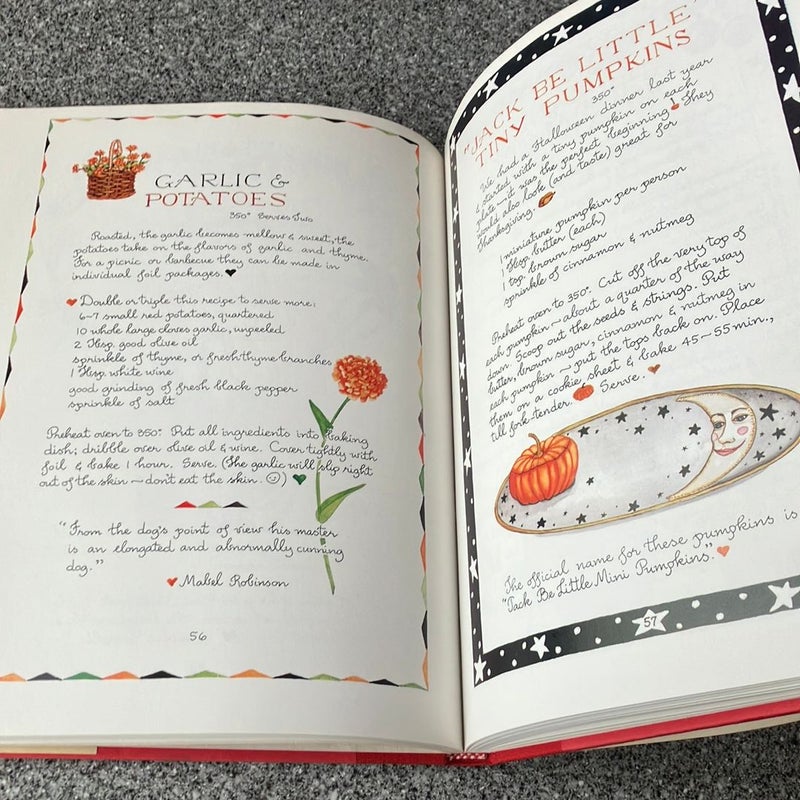 GARLIC &
POTATOES
350° Serves Two
Roasted, the garlic becomes mellow & sweet, the
potatoes take on the flavors of garlic and thyme.
For a picnic or barbecue they can be made in
individual foil packages. ♥
♥ Double or triple this recipe to serve more:
6~7 small red potatoes, quartered
10 whole large cloves garlic, unpeeled
2 Tbsp. good olive oil
sprinkle of thyme, or fresh thyme branches
1 Tbsp. white wine
good grinding of fresh black pepper
sprinkle of salt
Preheat oven to 350°. Put all ingredients into baking
dish; dribble over olive oil & wine. Cover tightly with
foil & bake 1 hour. Serve. (The garlic will slip right
out of the skin — don't eat the skin. ☺) ♥
"From the dog's point of view his master
is an elongated and abnormally cunning
dog."
♥ Mabel Robinson
56
"JACK BE LITTLE"
TINY PUMPKINS
350°
We had a Halloween dinner last year
& started with a tiny pumpkin on each
plate — it was the perfect beginning! They
would also look (and taste) great for
Thanksgiving.
1 miniature pumpkin per person
1 Tbsp. butter (each)
1 tsp. brown sugar
sprinkle of cinnamon & nutmeg
Preheat oven to 350°. Cut off the very top of
each pumpkin ~ about a quarter of the way
down. Scoop out the seeds & strings. Put
butter, brown sugar, cinnamon & nutmeg in
each pumpkin ~ put the tops back on. Place
them on a cookie sheet & bake 45~55 min.,
till fork-tender. Serve. ♥
The official name for these pumpkins is
"Jack Be Little Mini Pumpkins." ♥
57